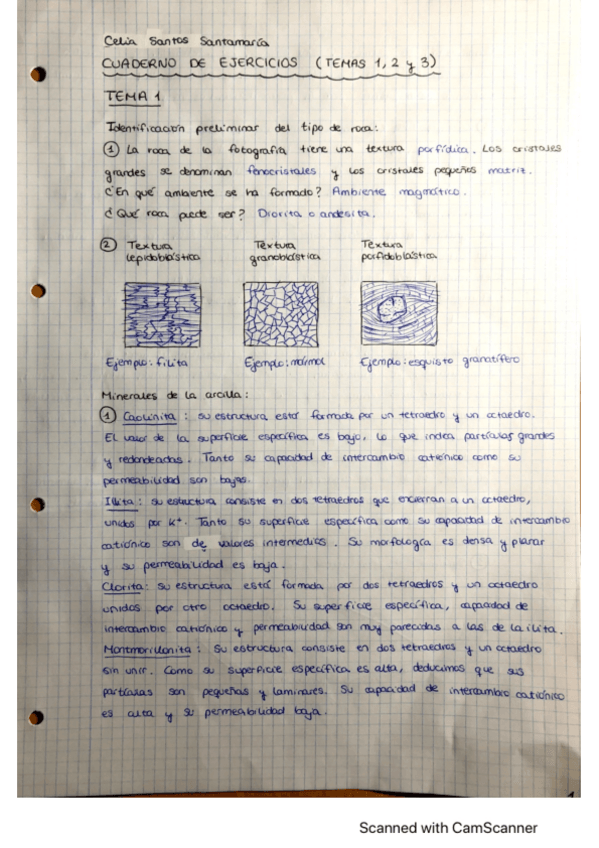 Celia Santos Santamaría
CUADERNO DE EJERCICIOS (TEMAS 1, 2 y 3)
TEMA 1
Identificación preliminar del tipo de roca:
① La roca de la fotografía tiene una textura porfídica. Los cristales
grandes se denominan fenocristales y los cristales pequeños matriz.
¿En qué ambiente se ha formado? Ambiente magmático.
¿Qué roca puede ser? Diorita o andesita.
② Textura lepidoblástica
Textura granoblástica
Textura porfidoblástica
Ejemplo: filita
Ejemplo: mármol
Ejemplo: esquisto granatífero
Minerales de la arcilla:
① Caolinita: su estructura está formada por un tetraedro y un octaedro.
El valor de la superficie específica es bajo, lo que indica partículas grandes
y redondeadas. Tanto su capacidad de intercambio catiónico como su
permeabilidad son bajas.
Ilita: su estructura consiste en dos tetraedros que encierran a un octaedro,
unidos por K⁺. Tanto su superficie específica como su capacidad de intercambio
catiónico son de valores intermedios. Su morfología es densa y planar
y su permeabilidad es baja.
Clorita: su estructura está formada por dos tetraedros y un octaedro
unidos por otro octaedro. Su superficie específica, capacidad de
intercambio catiónico y permeabilidad son muy parecidas a las de la ilita.
Montmorillonita: Su estructura consiste en dos tetraedros y un octaedro
sin unir. Como su superficie específica es alta, deducimos que sus
partículas son pequeñas y laminares. Su capacidad de intercambio catiónico
es alta y su permeabilidad baja.
1
Scanned with CamScanner